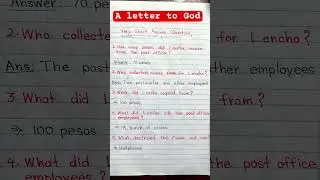 A letter to God
Very Short Answer Question,
1. How many pesos did Lencho receive
from the post office?
Answer: 70 pesos
2. Who collected money for Lencho?
Ans: The postmaster and other employees
3. What did Lencho expect from?
→ 100 pesos
4. What did Lencho call the post office
employees?
→ A bunch of crooks
What destroyed the
→ Hailstorm
Answer: 70
2. Who collecte
Ans: The post
3. What did
→ 100 pesos
4. What did
for Lencho?
other employees
from.?
the post office